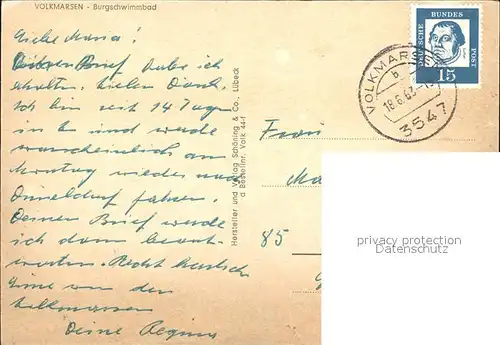 VOLKMARSEN - Burgschwimmbad
Liebe Mama!
Deinen Brief habe ich
erhalten, vielen Dank,
Ich bin seit 14 Tagen
in und werde
warscheinlich am
Montag wieder nach
Düsseldorf fahren.
Deinen Brief werde
ich dann beant-
worten. Recht herzliche
von
Volkmarsen
Deine Regina
Hersteller und Verlag Schöning & Co., Lübeck
Bestellnr. Volk 44
Frau
Ma
85
DEUTSCHE BUNDESPOST
15
VOLKMARSEN
b
18.6.62
3547
privacy protection
Datenschutz